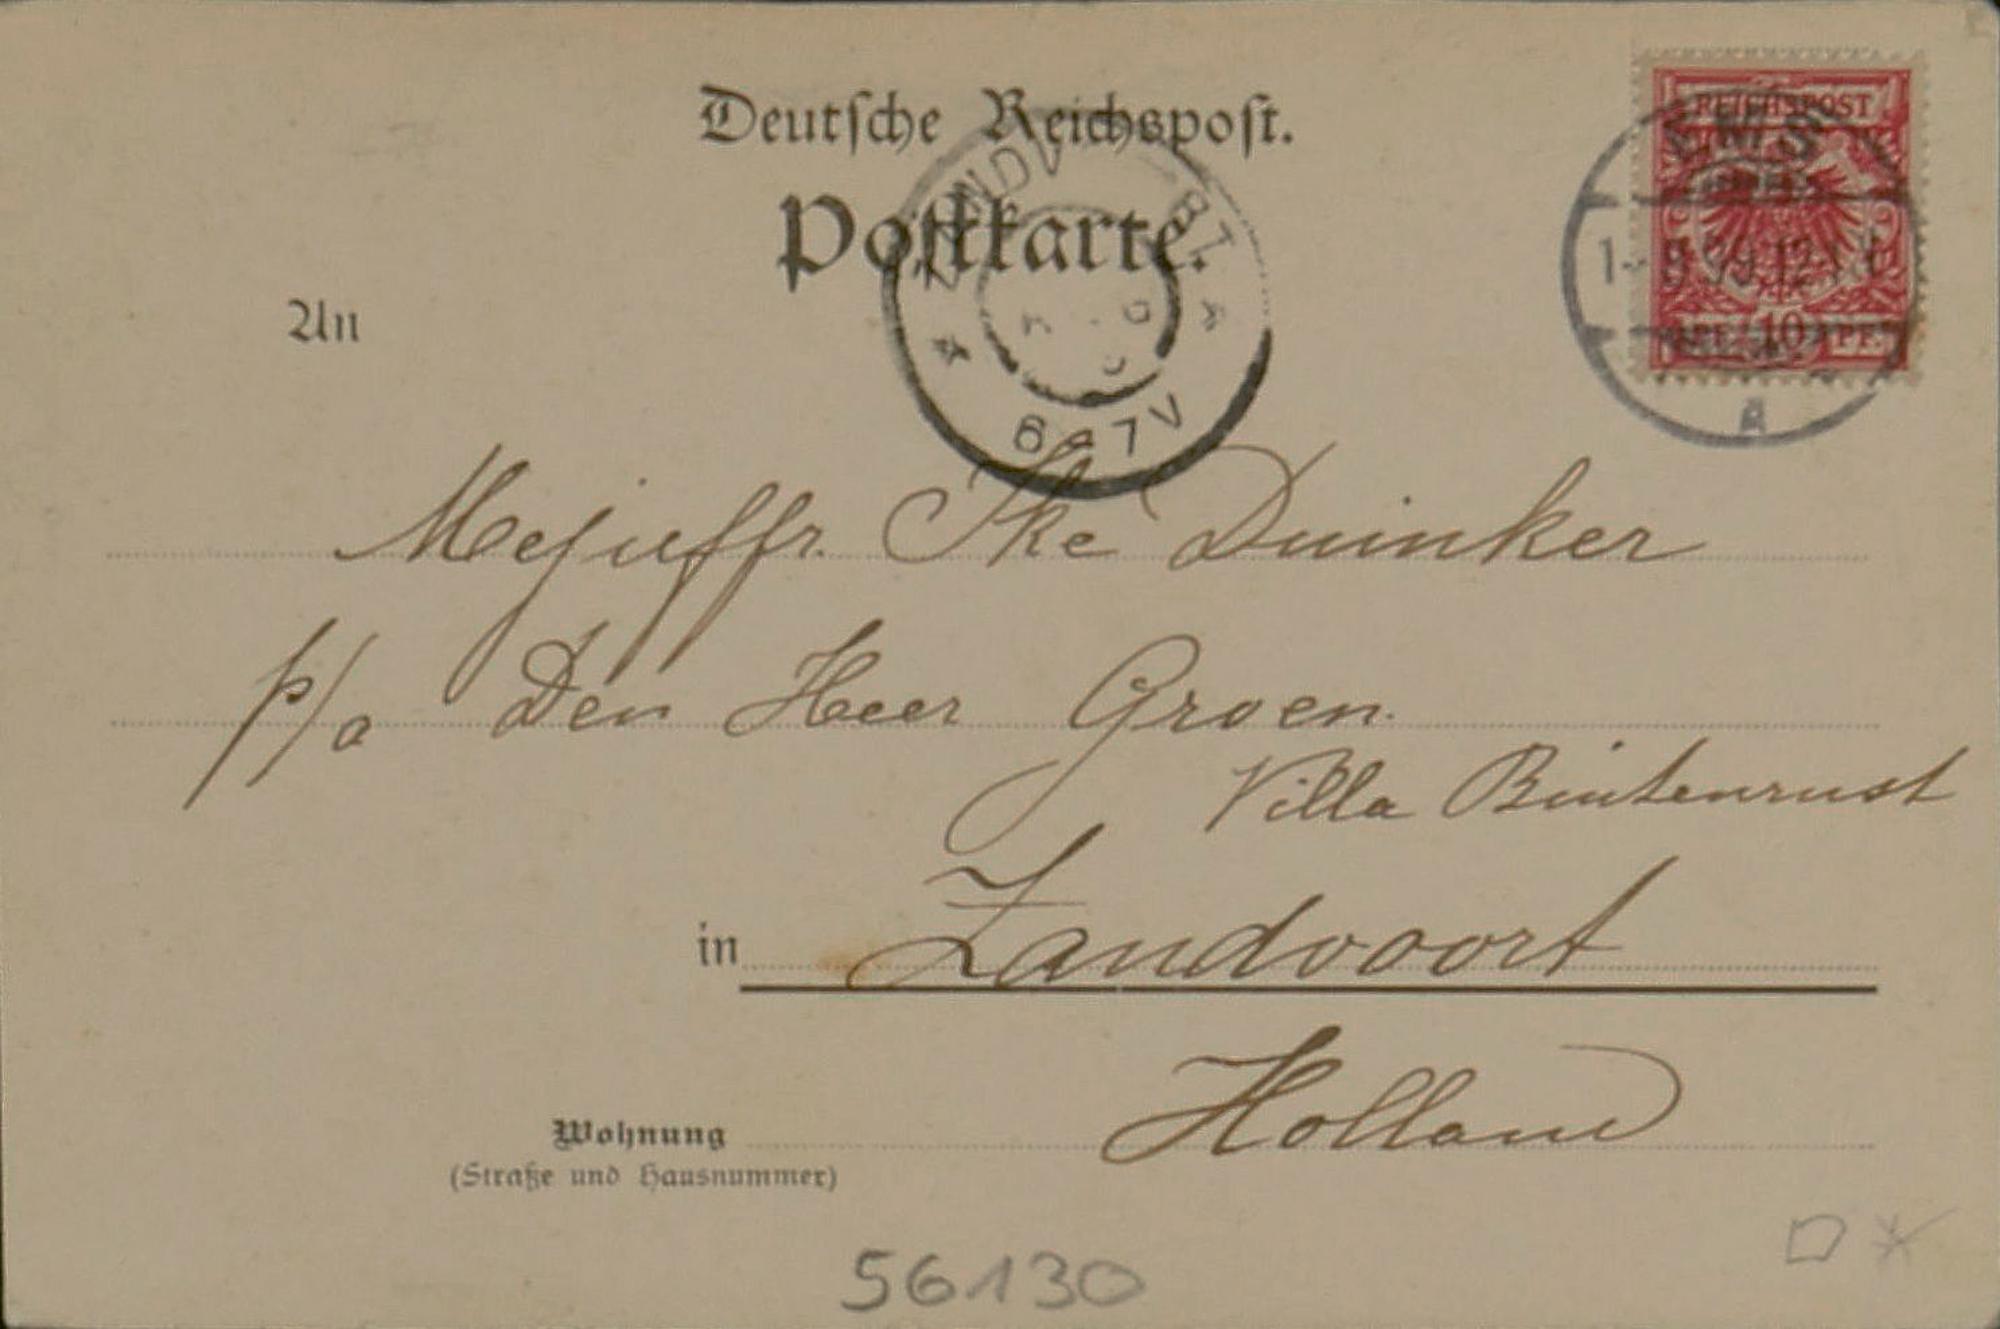 Deutsche Reichspost.
Postkarte.
REICHSPOST
EMS
1-9 99.12-1
10
PF.
A
ZANDV
6-7V
An
Mejuffr. Ike Duinker
p/a Den Heer Groen.
Villa Buitenrust
in Zandvoort
Holland
Wohnung
(Straße und Hausnummer)
56130